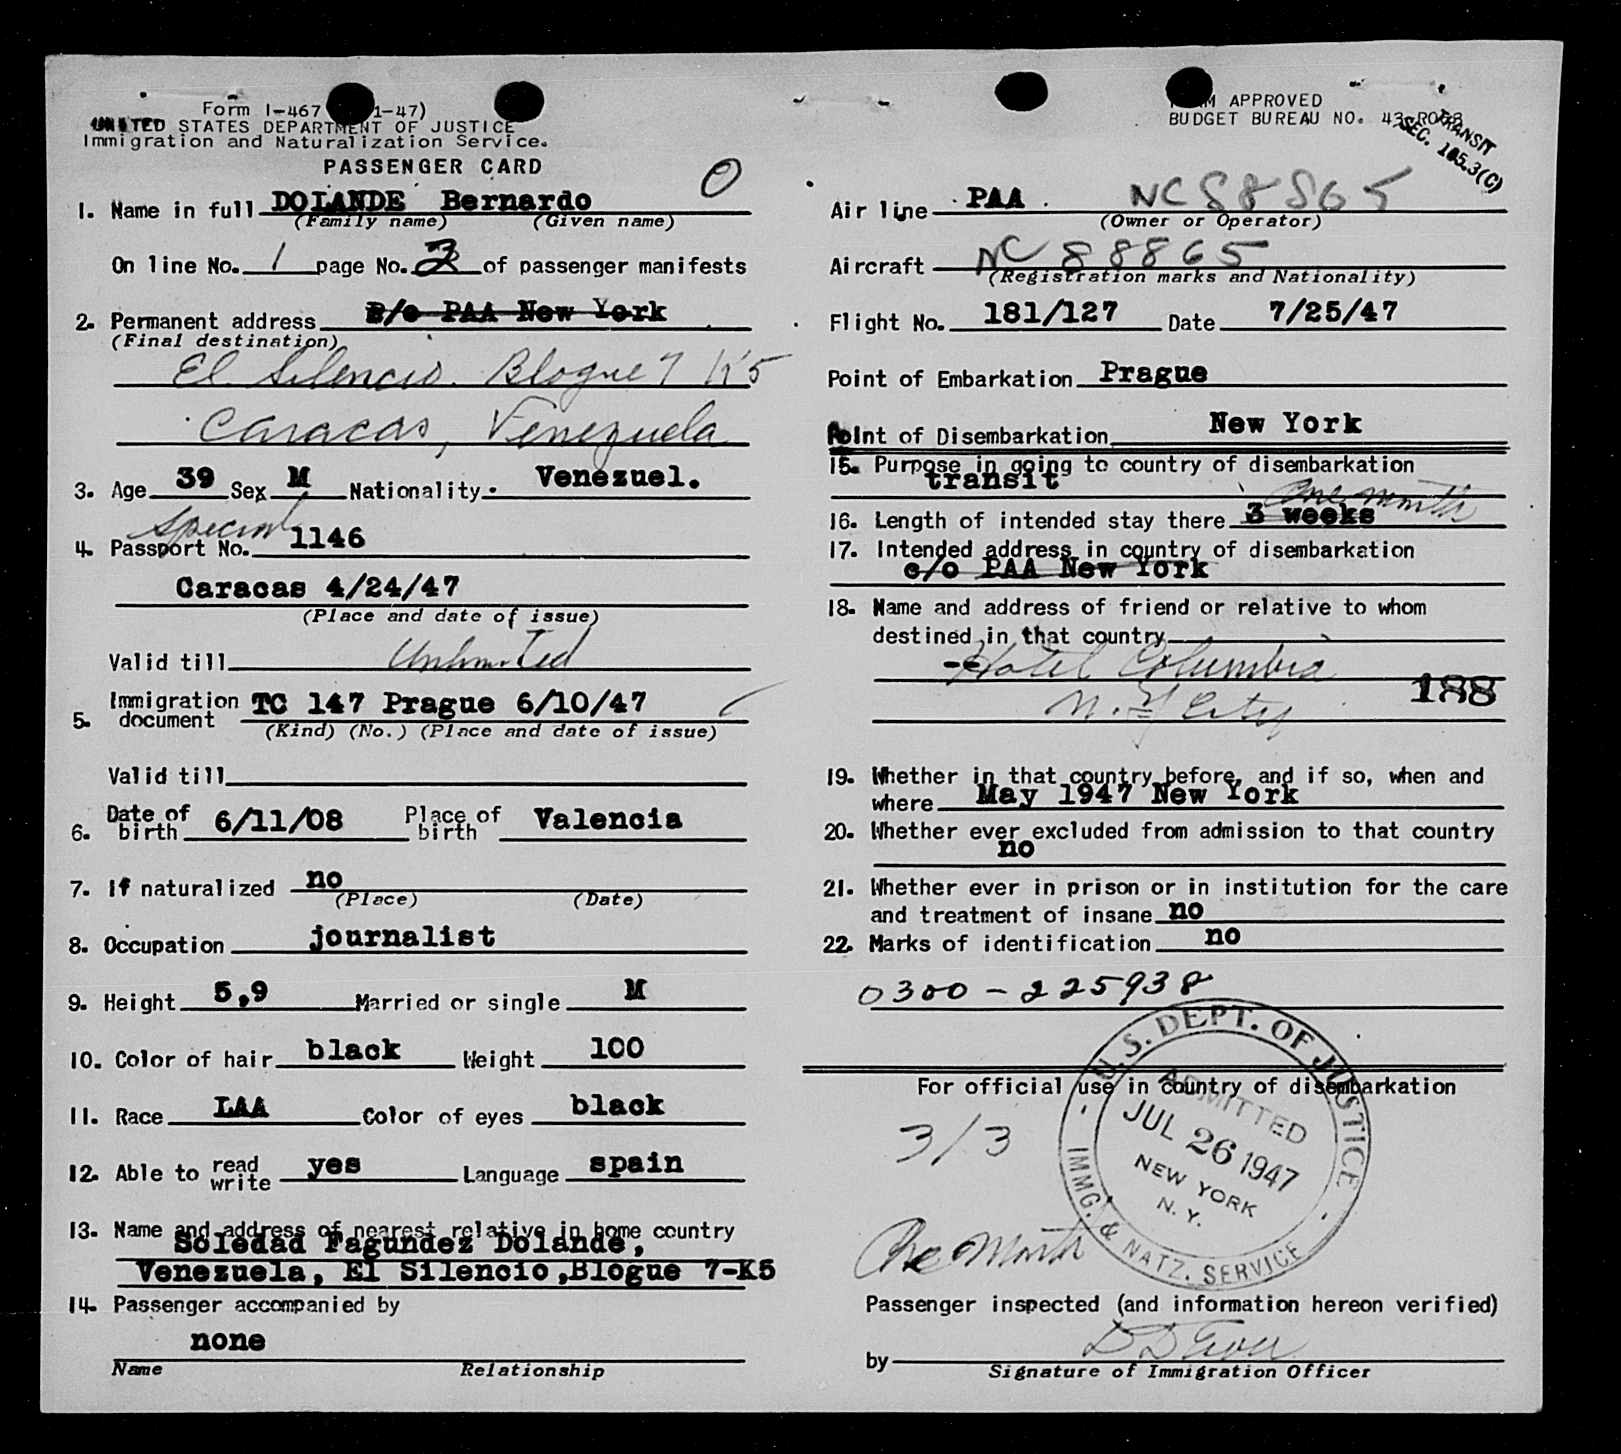 Form I-467 1-47)
UNITED STATES DEPARTMENT OF JUSTICE
Immigration and Naturalization Service.
PASSENGER CARD
0
1. Name in full DOLANDE Bernardo
(Family name) (Given name)
On line No. 1 page No. 3 of passenger manifests
2. Permanent address B/o PAA New York
(Final destination)
El Silencio. Blogue 7 K5
Caracas, Venezuela
3. Age 39 Sex M Nationality Venezuel.
Special
4. Passport No. 1146
Caracas 4/24/47
(Place and date of issue)
Valid till Unlimited
5. Immigration document TC 147 Prague 6/10/47
(Kind) (No.) (Place and date of issue)
Valid till
6. Date of birth 6/11/08 Place of birth Valencia
7. If naturalized no
(Place) (Date)
8. Occupation journalist
9. Height 5,9 Married or single M
10. Color of hair black Weight 100
11. Race LAA Color of eyes black
12. Able to read write yes Language spain
13. Name and address of nearest relative in home country
Soledad Fagundez Dolande,
Venezuela, El Silencio,Blogue 7-K5
14. Passenger accompanied by
none
Name Relationship
FORM APPROVED
BUDGET BUREAU NO. 43-R043
TRANSIT
SEC. 105.3(C)
Air line PAA NC 88865
(Owner or Operator)
Aircraft NC 88865
(Registration marks and Nationality)
Flight No. 181/127 Date 7/25/47
Point of Embarkation Prague
Point of Disembarkation New York
15. Purpose in going to country of disembarkation
transit
One month
16. Length of intended stay there 3 weeks
17. Intended address in country of disembarkation
c/o PAA New York
18. Name and address of friend or relative to whom
destined in that country
-- Hotel Columbia
188
N. Y City
19. Whether in that country before, and if so, when and
where May 1947 New York
20. Whether ever excluded from admission to that country
no
21. Whether ever in prison or in institution for the care
and treatment of insane no
22. Marks of identification no
0300-225938
For official use in country of disembarkation
3/3
U.S. DEPT. OF JUSTICE
ADMITTED
JUL 26 1947
NEW YORK
N. Y.
IMMG. & NATZ. SERVICE
One Month
Passenger inspected (and information hereon verified)
by
Signature of Immigration Officer